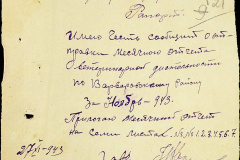 21
Рапорт.
Имею честь сообщить о от-
правки месячного отчета
ветеринарной деятельности
по Варваровскому району
за Ноябрь-943.
Приложено месячной отчет
на семи листах. №№ 1.2.3.4.5.6.7.
27/XI-943